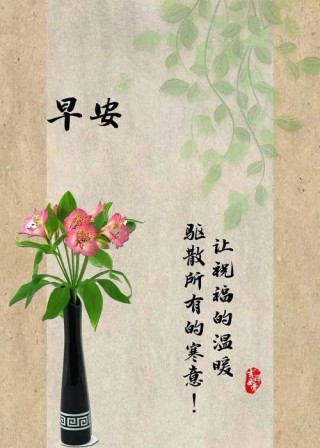 早安
让祝福的温暖
驱散所有的寒意！